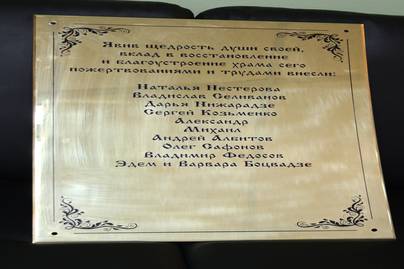 Явив щедрость души своей,
вклад в восстановление
и благоустроение храма сего
пожертвованиями и трудами внесли:
Наталья Нестерова
Владислав Селиванов
Дарья Нижарадзе
Сергей Козьменко
Александр
Михаил
Андрей Албитов
Олег Сафонов
Владимир Федосов
Эдем и Варвара Боцвадзе